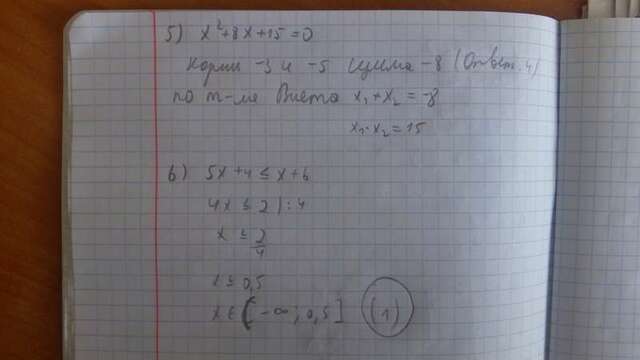 5) x²+8x+15=0
корни -3 и -5 сумма -8 (Ответ. 4)
по т-ме Виета x₁+x₂=-8
x₁·x₂=15
6) 5x+4≤x+6
4x≤2|:4
x≤2/4
x≤0,5
x∈[-∞;0,5] (1)